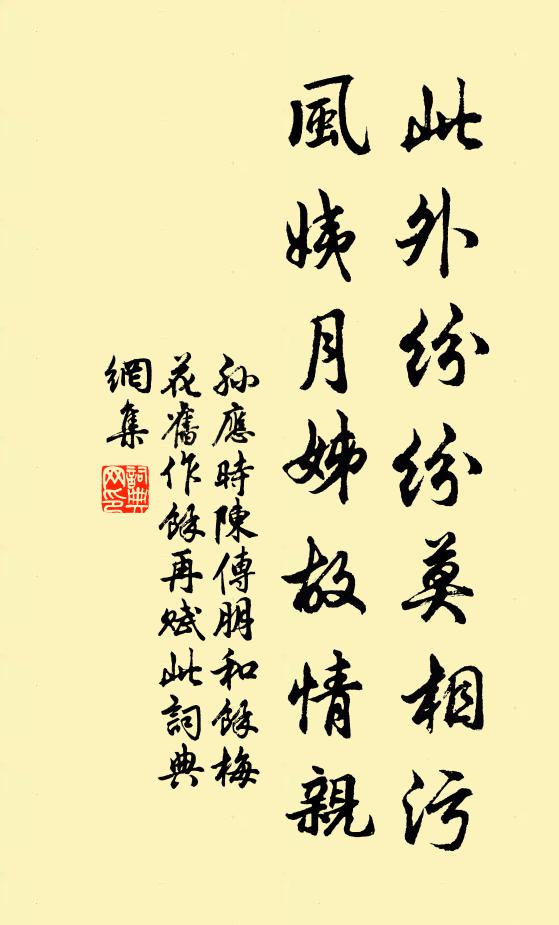 此外紛紛莫相污
風姨月姊故情親
孫應時陳傅朋和餘梅
花舊作餘再賦此詞典
網集
詞典網印